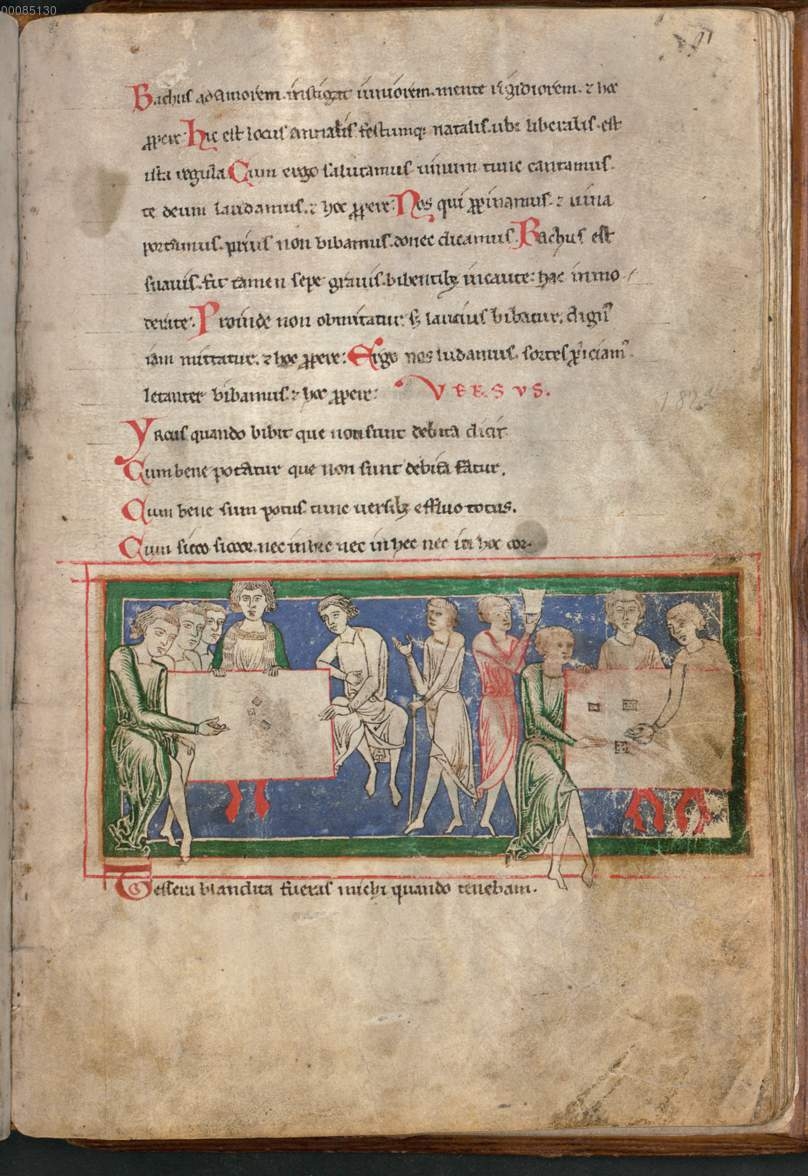 00085130
91
Bachus ad amorem. instigat iuuiorem. mente rigidiorem. ⁊ hoc
ꝓpere. Hic est locus annalis. festumq; natalis. ubi liberalis. est
ista regula. Cum ergo salutamus. uinum tunc cantamus.
te deum laudamus. ⁊ hoc ꝓpere. Nos qui ꝓpinamus. ⁊ uina
portamus. prius non bibamus. donec dicamus. Bachus est
suauis. fit tamen sepe grauis. bibentibꝫ incaute: hac inmo
derate. Proinde non obmittatur. sꝫ laucius bibatur. digitꝰ
iam mittatur. ⁊ hoc ꝓpere: Ergo nos ludamus. sortes ꝓiciamꝰ.
letanter bibamus. ⁊ hoc ꝓpere: VERSVS.
Yrcus quando bibit que non sunt debita dicit
Cum bene potatur que non sunt debita fatur.
Cum bene sum potus tunc uersibꝫ effluo totus.
Cum sicco siccor. nec in hec nec in hec nec in hoc cor.
Tessera blandita fueras michi quando tenebam.